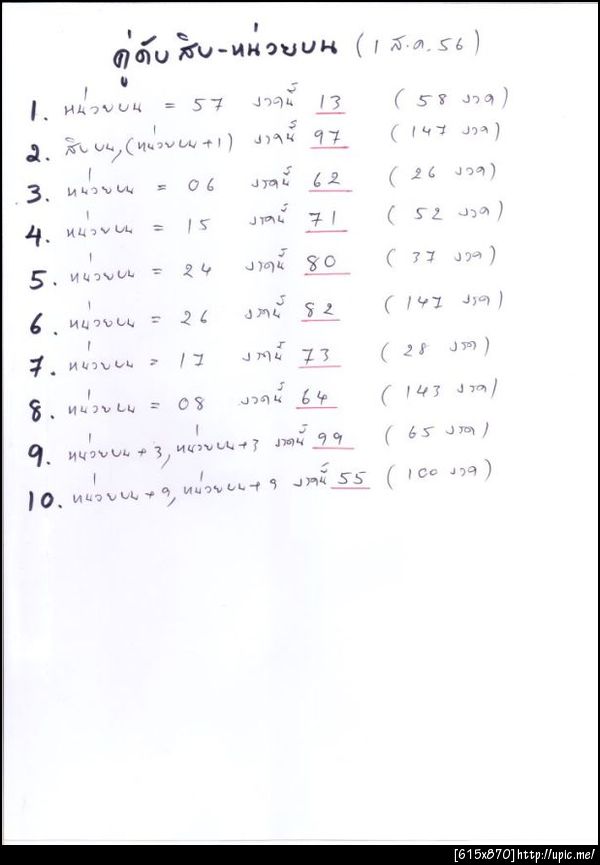 คู่ดับสิบ-หน่วยบน (1 ส.ค. 56)
1. หน่วยบน = 57 งวดนี้ 13 (58 งวด)
2. สิบบน,(หน่วยบน+1) งวดนี้ 97 (147 งวด)
3. หน่วยบน = 06 งวดนี้ 62 (26 งวด)
4. หน่วยบน = 15 งวดนี้ 71 (52 งวด)
5. หน่วยบน = 24 งวดนี้ 80 (37 งวด)
6. หน่วยบน = 26 งวดนี้ 82 (147 งวด)
7. หน่วยบน = 17 งวดนี้ 73 (28 งวด)
8. หน่วยบน = 08 งวดนี้ 64 (143 งวด)
9. หน่วยบน+3, หน่วยบน+3 งวดนี้ 99 (65 งวด)
10. หน่วยบน+9, หน่วยบน+9 งวดนี้ 55 (100 งวด)
[615x870]http://upic.me/